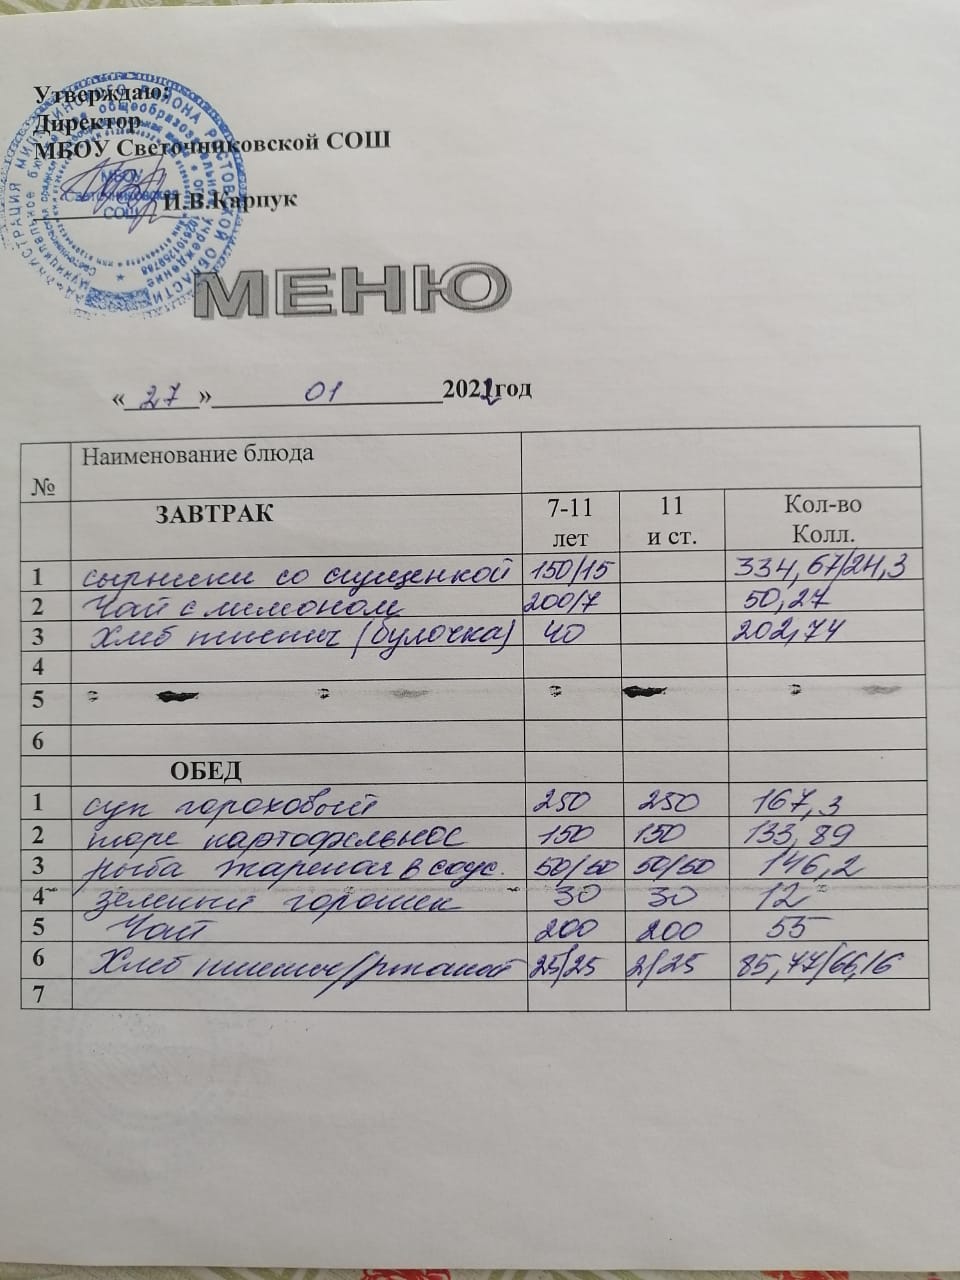 Утверждаю:
Директор
МБОУ Светочниковской СОШ
И.В.Карпук
МБОУ
Светочниковская
СОШ
МЕНЮ
« 27 » 01 2022 год
№ Наименование блюда
ЗАВТРАК 7-11 лет 11 и ст. Кол-во Колл.
1 сырники со сгущенкой 150/15 334,67/24,3
2 Чай с лимоном 200/7 50,27
3 Хлеб пшенич (булочка) 40 202,74
4
5
6
ОБЕД
1 суп гороховый 250 250 167,3
2 пюре картофельное 150 150 133,89
3 рыба жареная в соус. 50/50 50/50 146,2
4 зеленый горошек 30 30 12
5 Чай 200 200 55
6 Хлеб пшенич/ржаной 25/25 2/25 85,77/66,16
7